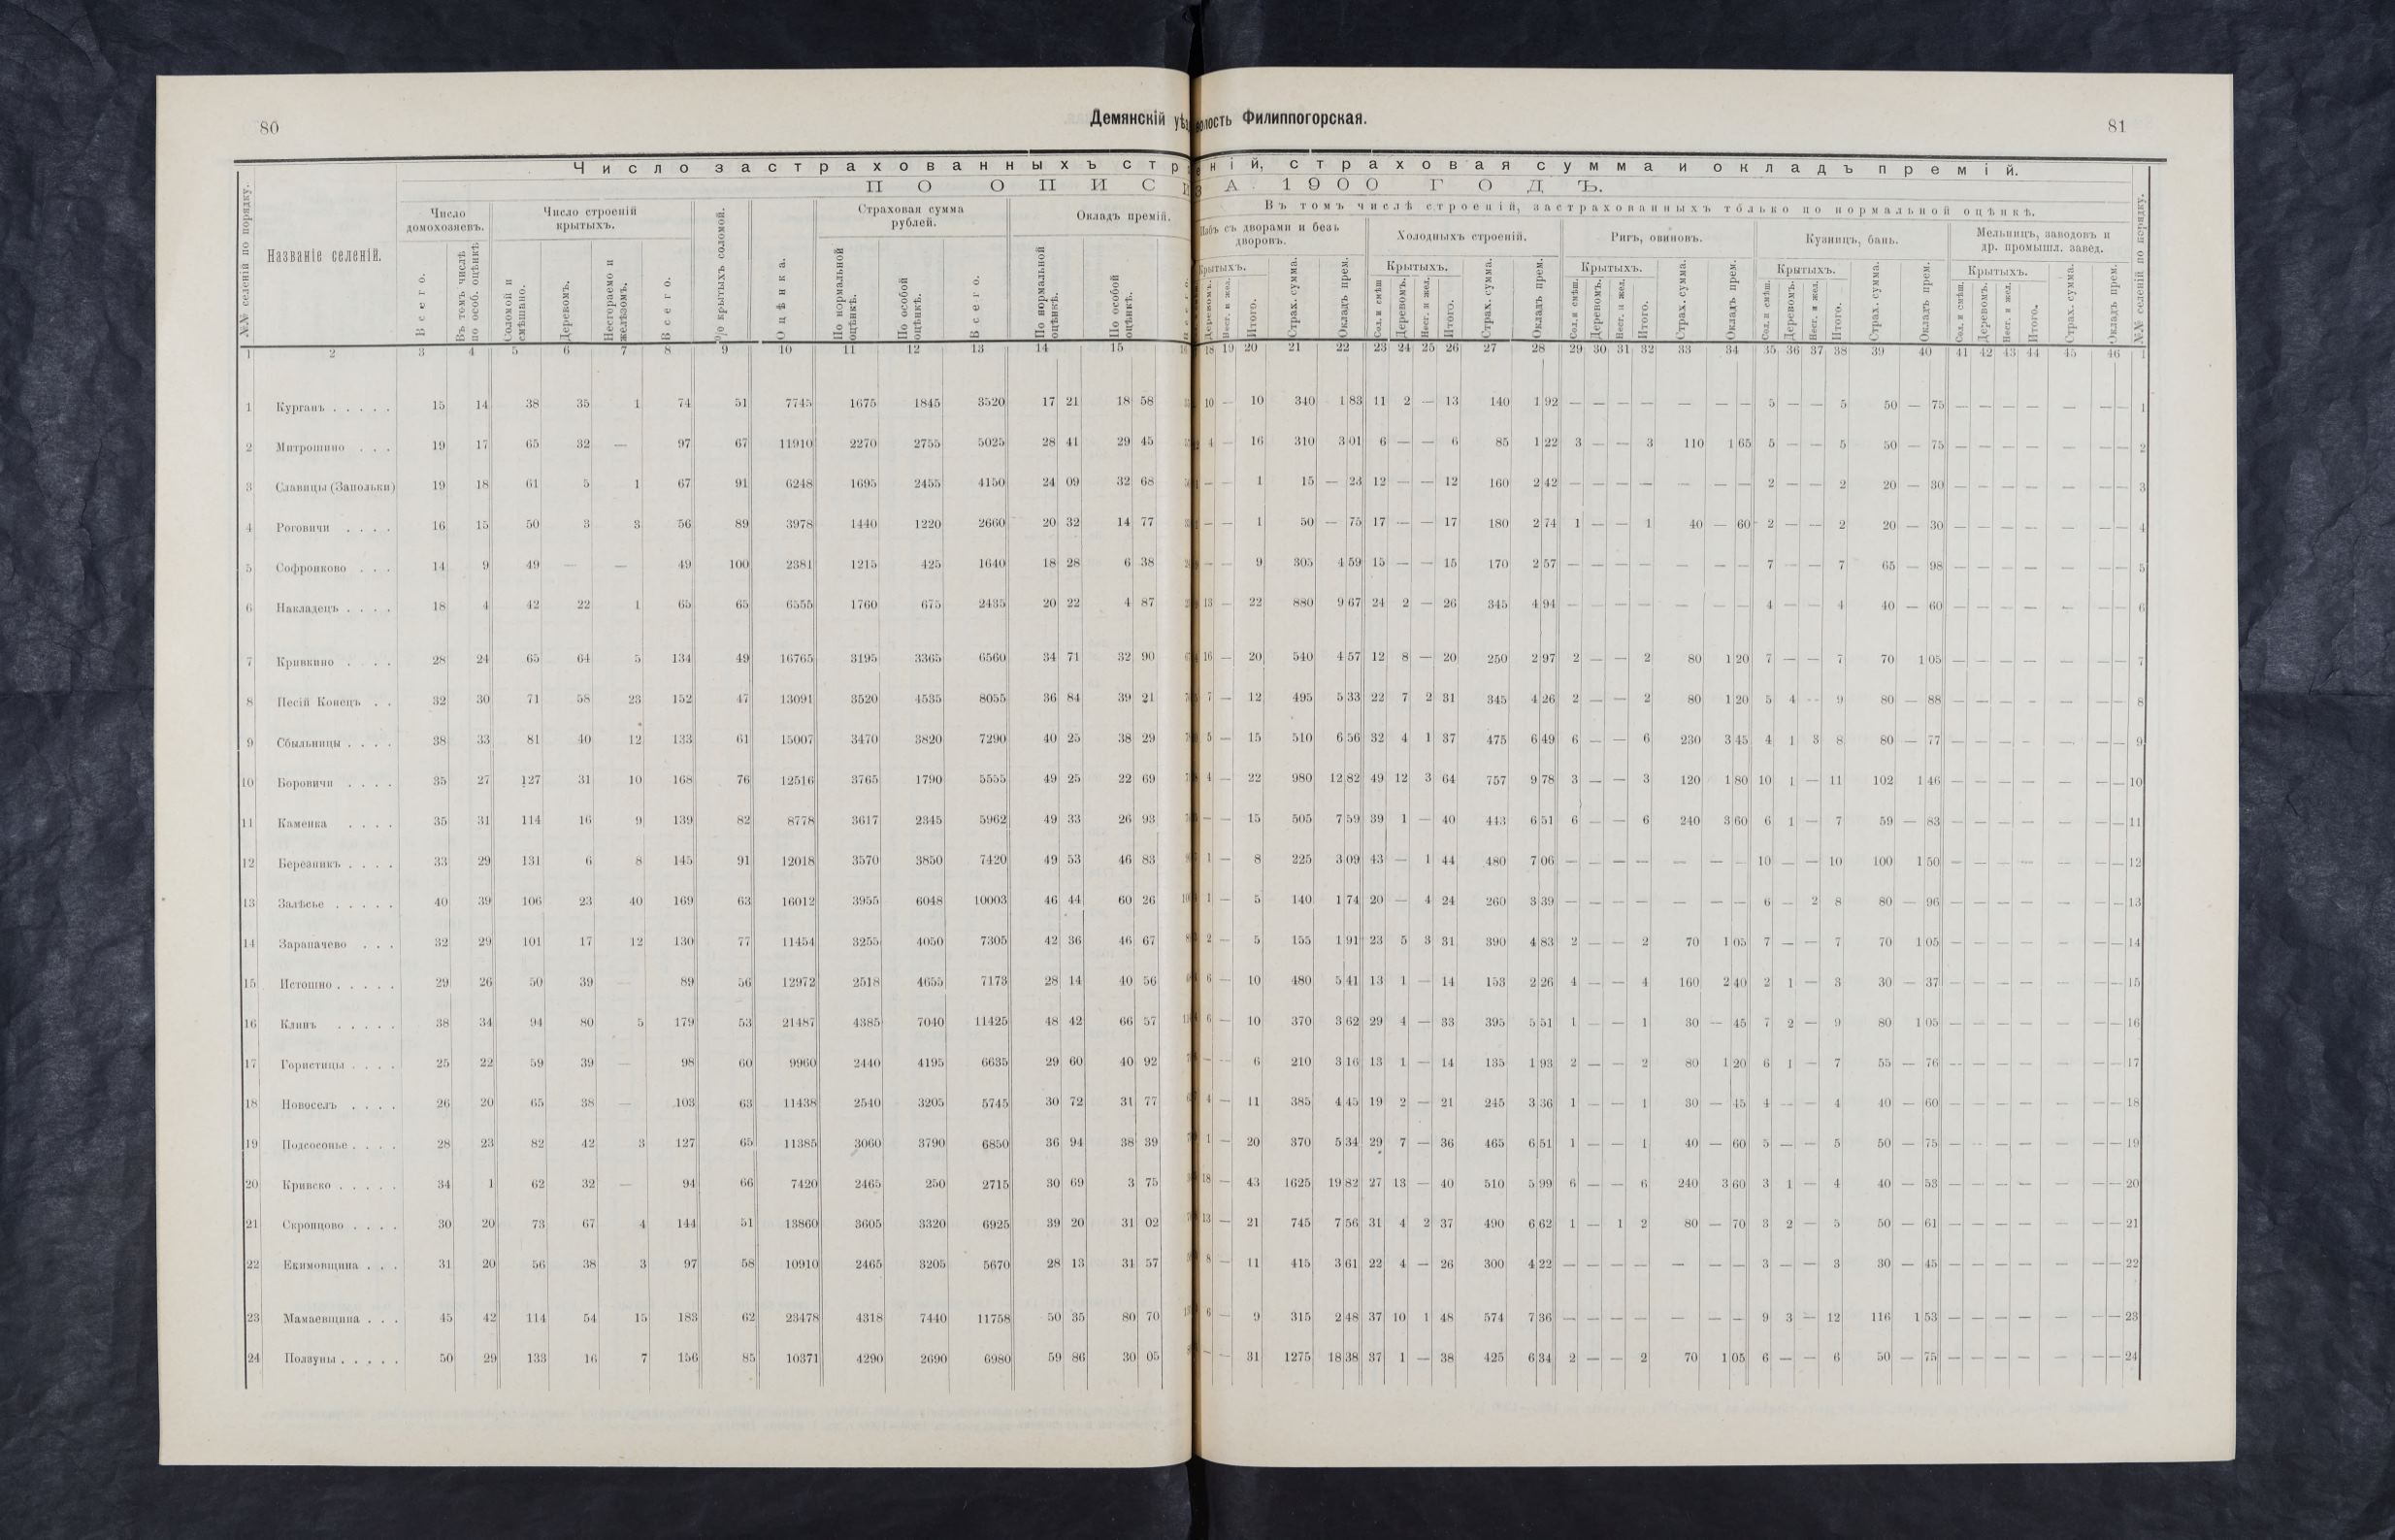 80
Демянскій уѣз
волость Филиппогорская.
81
Число застрахованныхъ стр
еній, страховая сумма и окладъ премій.
ПО ОПИС
ЗА 1900 ГОДЪ.
№№ селеній по порядку.
Названіе селеній.
Число домохозяевъ.
Всего.
Въ томъ числѣ по особ. оцѣнкѣ
Число строеній крытыхъ.
Соломой и смѣшано.
Деревомъ.
Несгораемо и желѣзомъ.
Всего.
% крытыхъ соломой.
Оцѣнка.
Страховая сумма рублей.
По нормальной оцѣнкѣ.
По особой оцѣнкѣ.
Всего.
Окладъ премій.
По нормальной оцѣнкѣ.
По особой оцѣнкѣ.
Въ томъ числѣ строеній, застрахованныхъ только по нормальной оцѣнкѣ.
Избъ съ дворами и безъ дворовъ.
Крытыхъ.
Деревомъ.
Несг. и жел.
Итого.
Страх. сумма.
Окладъ прем.
Холодныхъ строеній.
Крытыхъ.
Сол. и смѣш
Деревомъ.
Несг. и жел.
Итого.
Страх. сумма.
Окладъ прем.
Ригъ, овиновъ.
Крытыхъ.
Сол. и смѣш.
Деревомъ.
Несг. и жел.
Итого.
Страх. сумма.
Окладъ прем.
Кузницъ, бань.
Крытыхъ.
Сол. и смѣш.
Деревомъ.
Несг. и жел.
Итого.
Страх. сумма.
Окладъ прем.
Мельницъ, заводовъ и др. промышл. завед.
Крытыхъ.
Сол. и смѣш.
Деревомъ.
Несг. и жел.
Итого.
Страх. сумма.
Окладъ прем.
№№ селеній по порядку.
1 2 3 4 5 6 7 8 9 10 11 12 13 14 15 16 18 19 20 21 22 23 24 25 26 27 28 29 30 31 32 33 34 35 36 37 38 39 40 41 42 43 44 45 46 1
1 Курганъ . . . . . 15 14 38 35 1 74 51 7745 1675 1845 3520 17 21 18 58 10 — 10 340 1 83 11 2 — 13 140 1 92 — — — — — — — 5 — — 5 50 — 75 — — — — — — — 1
2 Митрошино . . . 19 17 65 32 — 97 67 11910 2270 2755 5025 28 41 29 45 4 — 16 310 3 01 6 — — 6 85 1 22 3 — — 3 110 1 65 5 — — 5 50 — 75 — — — — — — — 2
3 Славицы (Запольки) 19 18 61 5 1 67 91 6248 1695 2455 4150 24 09 32 68 — — 1 15 — 23 12 — — 12 160 2 42 — — — — — — — 2 — — 2 20 — 30 — — — — — — — 3
4 Роговичи . . . . 16 15 50 3 3 56 89 3978 1440 1220 2660 20 32 14 77 — — 1 50 — 75 17 — — 17 180 2 74 1 — — 1 40 — 60 2 — — 2 20 — 30 — — — — — — — 4
5 Софронково . . . 14 9 49 — — 49 100 2381 1215 425 1640 18 28 6 38 — — 9 305 4 59 15 — — 15 170 2 57 — — — — — — — 7 — — 7 65 — 98 — — — — — — — 5
6 Накладецъ . . . . 18 4 42 22 1 65 65 6555 1760 675 2435 20 22 4 87 13 — 22 880 9 67 24 2 — 26 345 4 94 — — — — — — — 4 — — 4 40 — 60 — — — — — — — 6
7 Кривкино . . . 28 24 65 64 5 134 49 16765 3195 3365 6560 34 71 32 90 16 — 20 540 4 57 12 8 — 20 250 2 97 2 — — 2 80 1 20 7 — — 7 70 1 05 — — — — — — — 7
8 Песій Конецъ . . 32 30 71 58 23 152 47 13091 3520 4535 8055 36 84 39 21 7 — 12 495 5 33 22 7 2 31 345 4 26 2 — — 2 80 1 20 5 4 — 9 80 — 88 — — — — — — — 8
9 Сбыльницы . . . . 38 33 81 40 12 133 61 15007 3470 3820 7290 40 25 38 29 5 — 15 510 6 56 32 4 1 37 475 6 49 6 — — 6 230 3 45 4 1 3 8 80 — 77 — — — — — — — 9
10 Боровичи . . . . 35 27 127 31 10 168 76 12516 3765 1790 5555 49 25 22 69 4 — 22 980 12 82 49 12 3 64 757 9 78 3 — — 3 120 1 80 10 1 — 11 102 1 46 — — — — — — — 10
11 Каменка . . . . 35 31 114 16 9 139 82 8778 3617 2345 5962 49 33 26 93 — — 15 505 7 59 39 1 — 40 443 6 51 6 — — 6 240 3 60 6 1 — 7 59 — 83 — — — — — — — 11
12 Березникъ . . . . 33 29 131 6 8 145 91 12018 3570 3850 7420 49 53 46 83 1 — 8 225 3 09 43 — 1 44 480 7 06 — — — — — — — 10 — — 10 100 1 50 — — — — — — — 12
13 Залѣсье . . . . . 40 39 106 23 40 169 63 16012 3955 6048 10003 46 44 60 26 1 — 5 140 1 74 20 — 4 24 260 3 39 — — — — — — — 6 — 2 8 80 — 96 — — — — — — — 13
14 Зарапачево . . . 32 29 101 17 12 130 77 11454 3255 4050 7305 42 36 46 67 2 — 5 155 1 91 23 5 3 31 390 4 83 2 — — 2 70 1 05 7 — — 7 70 1 05 — — — — — — — 14
15 Истошно . . . . . 29 26 50 39 — 89 56 12972 2518 4655 7173 28 14 40 56 6 — 10 480 5 41 13 1 — 14 153 2 26 4 — — 4 160 2 40 2 1 — 3 30 — 37 — — — — — — — 15
16 Клинъ . . . . . 38 34 94 80 5 179 53 21487 4385 7040 11425 48 42 66 57 6 — 10 370 3 62 29 4 — 33 395 5 51 1 — — 1 30 — 45 7 2 — 9 80 1 05 — — — — — — — 16
17 Гористицы . . . . 25 22 59 39 — 98 60 9960 2440 4195 6635 29 60 40 92 — — 6 210 3 16 13 1 — 14 135 1 93 2 — — 2 80 1 20 6 1 — 7 55 — 76 — — — — — — — 17
18 Новоселъ . . . . 26 20 65 38 — 103 63 11438 2540 3205 5745 30 72 31 77 4 — 11 385 4 45 19 2 — 21 245 3 36 1 — — 1 30 — 45 4 — — 4 40 — 60 — — — — — — — 18
19 Подсосонье . . . . 28 23 82 42 3 127 65 11385 3060 3790 6850 36 94 38 39 1 — 20 370 5 34 29 7 — 36 465 6 51 1 — — 1 40 — 60 5 — — 5 50 — 75 — — — — — — — 19
20 Кривско . . . . . 34 1 62 32 — 94 66 7420 2465 250 2715 30 69 3 75 18 — 43 1625 19 82 27 13 — 40 510 5 99 6 — — 6 240 3 60 3 1 — 4 40 — 53 — — — — — — — 20
21 Скронцово . . . . 30 20 73 67 4 144 51 13860 3605 3320 6925 39 20 31 02 13 — 21 745 7 56 31 4 2 37 490 6 62 1 — 1 2 80 — 70 3 2 — 5 50 — 61 — — — — — — — 21
22 Екимовщина . . . 31 20 56 38 3 97 58 10910 2465 3205 5670 28 13 31 57 8 — 11 415 3 61 22 4 — 26 300 4 22 — — — — — — — 3 — — 3 30 — 45 — — — — — — — 22
23 Мамаевщина . . . 45 42 114 54 15 183 62 23478 4318 7440 11758 50 35 80 70 6 — 9 315 2 48 37 10 1 48 574 7 36 — — — — — — — 9 3 — 12 116 1 53 — — — — — — — 23
24 Ползуны . . . . . 50 29 133 16 7 156 85 10371 4290 2690 6980 59 86 30 05 — — 31 1275 18 38 37 1 — 38 425 6 34 2 — — 2 70 1 05 6 — — 6 50 — 75 — — — — — — — 24